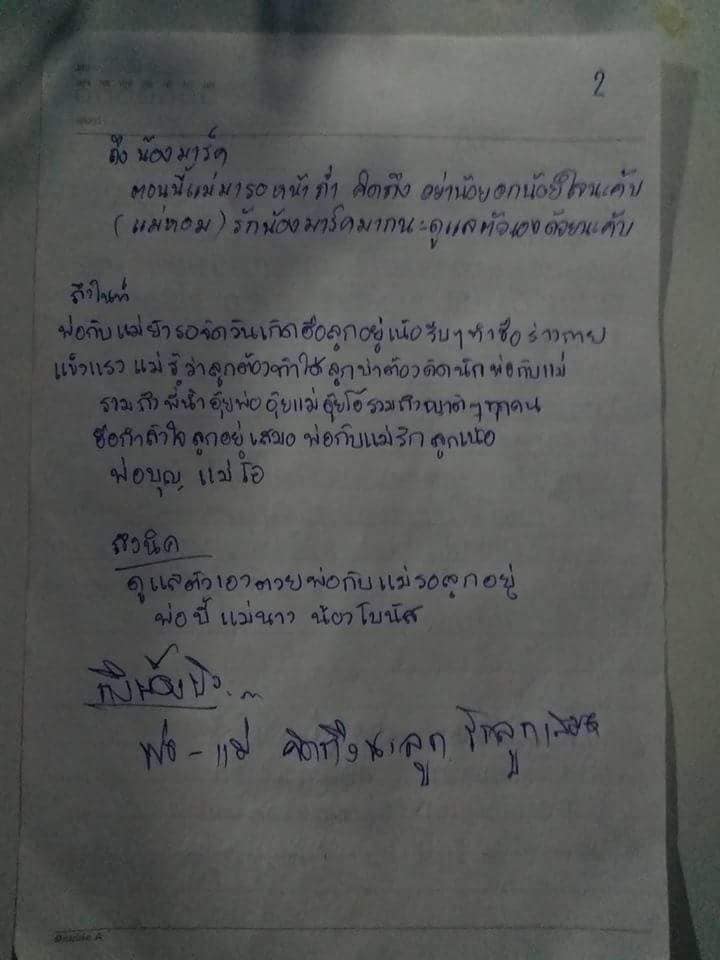 2
ถึง น้องมาร์ค
ตอนนี้แม่มารอหน้าถ้ำ คิดถึง อย่าน้อยอกน้อยใจนะค้บ
(แม่หอม) รักน้องมาร์คมากนะดูแลตัวเองด้วยนะค้บ
ถึงไนท์
พ่อกับแม่ยังรอจัดวันเกิดฮือลูกอยู่เน้อ รีบๆ ทำฮือร่างกาย
แข็งแรง แม่รู้ว่าลูกต้องทำได้ ลูกบ่าต้องคิดนัก พ่อกับแม่
รวมถึงพี่น้ำ อุ้ยพ่อ อุ้ยแม่ อุ้ยโอ้ รวมถึงญาติๆ ทุกคน
ฮือกำลังใจลูกอยู่เสมอ พ่อกับแม่รักลูกเน้อ
พ่อบุญ แม่โอ
ถึงนิค
ดูแลตัวเองตวยพ่อกับแม่รอลูกอยู่
พ่อบี้ แม่นาง น้องโบนัส
ถึงน้อง
พ่อ - แม่ คิดถึงนะลูก รักลูกเสมอ